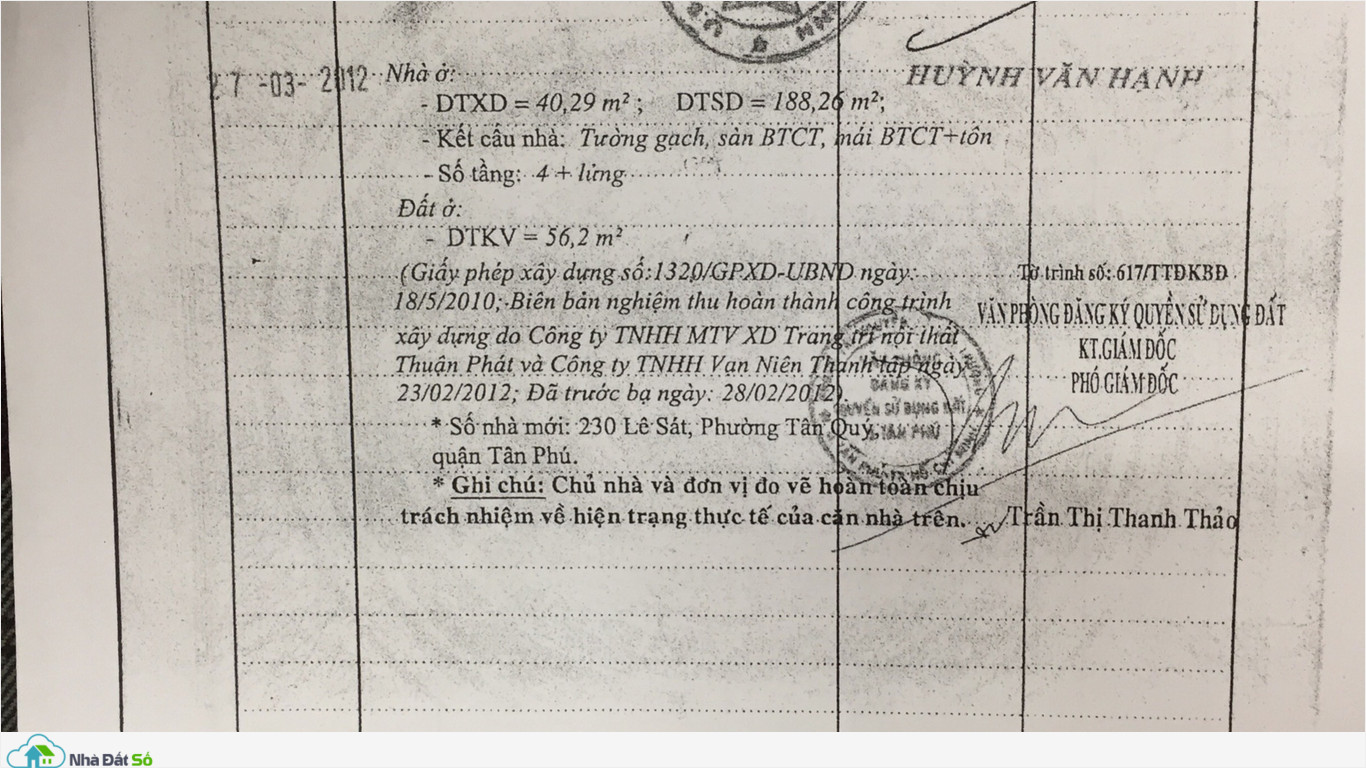 27-03-2012 Nhà ở: HUỲNH VĂN HẠNH
- DTXD = 40,29 m² ; DTSD = 188,26 m²;
- Kết cấu nhà: Tường gạch, sàn BTCT, mái BTCT+tôn
- Số tầng: 4 + lửng
Đất ở:
- DTKV = 56,2 m²
(Giấy phép xây dựng số:1320/GPXD-UBND ngày:
18/5/2010; Biên bản nghiệm thu hoàn thành công trình
xây dựng do Công ty TNHH MTV XD Trang trí nội thất
Thuận Phát và Công ty TNHH Vạn Niên Thanh lập ngày
23/02/2012; Đã trước bạ ngày: 28/02/2012).
* Số nhà mới: 230 Lê Sát, Phường Tân Quý,
quận Tân Phú.
* Ghi chú: Chủ nhà và đơn vị đo vẽ hoàn toàn chịu
trách nhiệm về hiện trạng thực tế của căn nhà trên.
Tờ trình số: 617/TTĐKBĐ
VĂN PHÒNG ĐĂNG KÝ QUYỀN SỬ DỤNG ĐẤT
KT.GIÁM ĐỐC
PHÓ GIÁM ĐỐC
VĂN PHÒNG
ĐĂNG KÝ
QUYỀN SỬ DỤNG ĐẤT
Q.TÂN PHÚ
Trần Thị Thanh Thảo
Nhà Đất Số